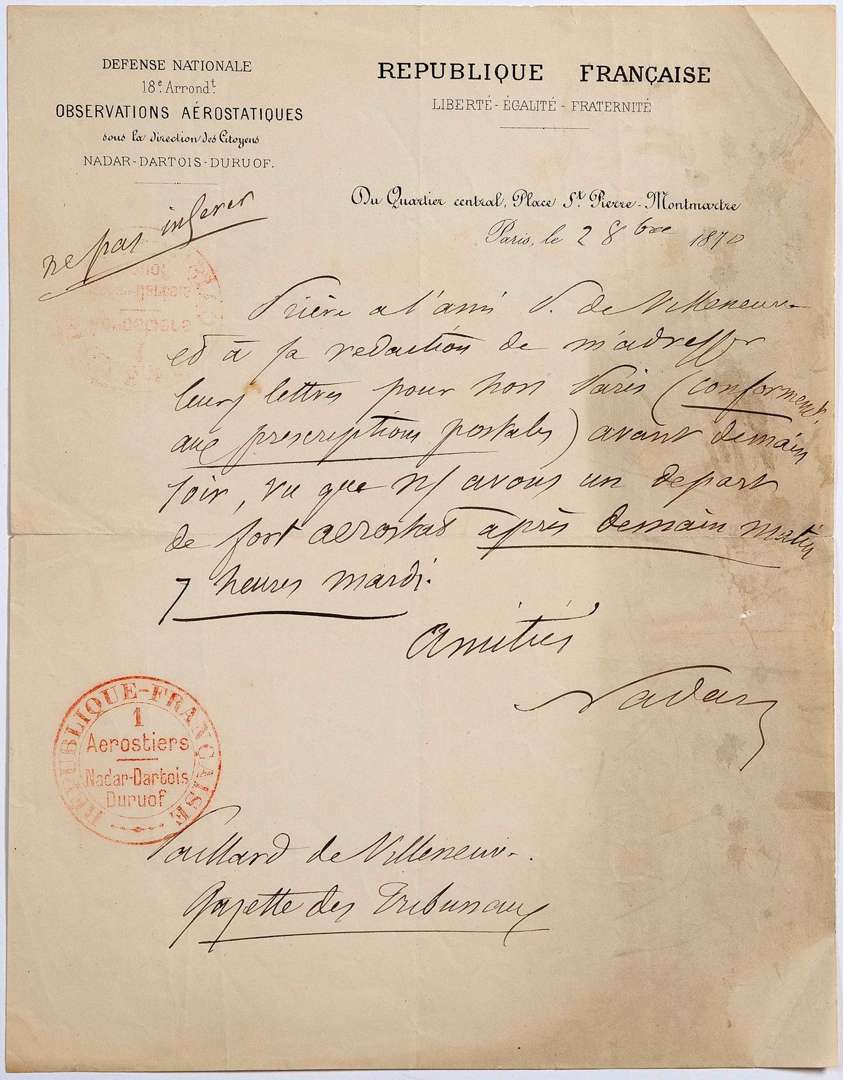 DEFENSE NATIONALE
18e. Arrondt.
OBSERVATIONS AÉROSTATIQUES
sous la direction des Citoyens
NADAR-DARTOIS-DURUOF.
REPUBLIQUE FRANÇAISE
LIBERTÉ-ÉGALITÉ-FRATERNITÉ
Du Quartier central, Place St. Pierre-Montmartre
Paris, le 2 8bre 1870
ne pas inserer
Prière a l'ami P. de Villeneuve
et à sa redaction de m'adresser
leurs lettres pour hors Paris (conforment.
aux prescriptions postales) avant demain
soir, vu que ns avons un depart
de fort aerostat après demain matin
7 heures mardi.
Amitiés
Nadar
RÉPUBLIQUE-FRANÇAISE
1
Aerostiers
Nadar-Dartois
Duruof
Paillard de Villeneuve.
Gazette des Tribunaux